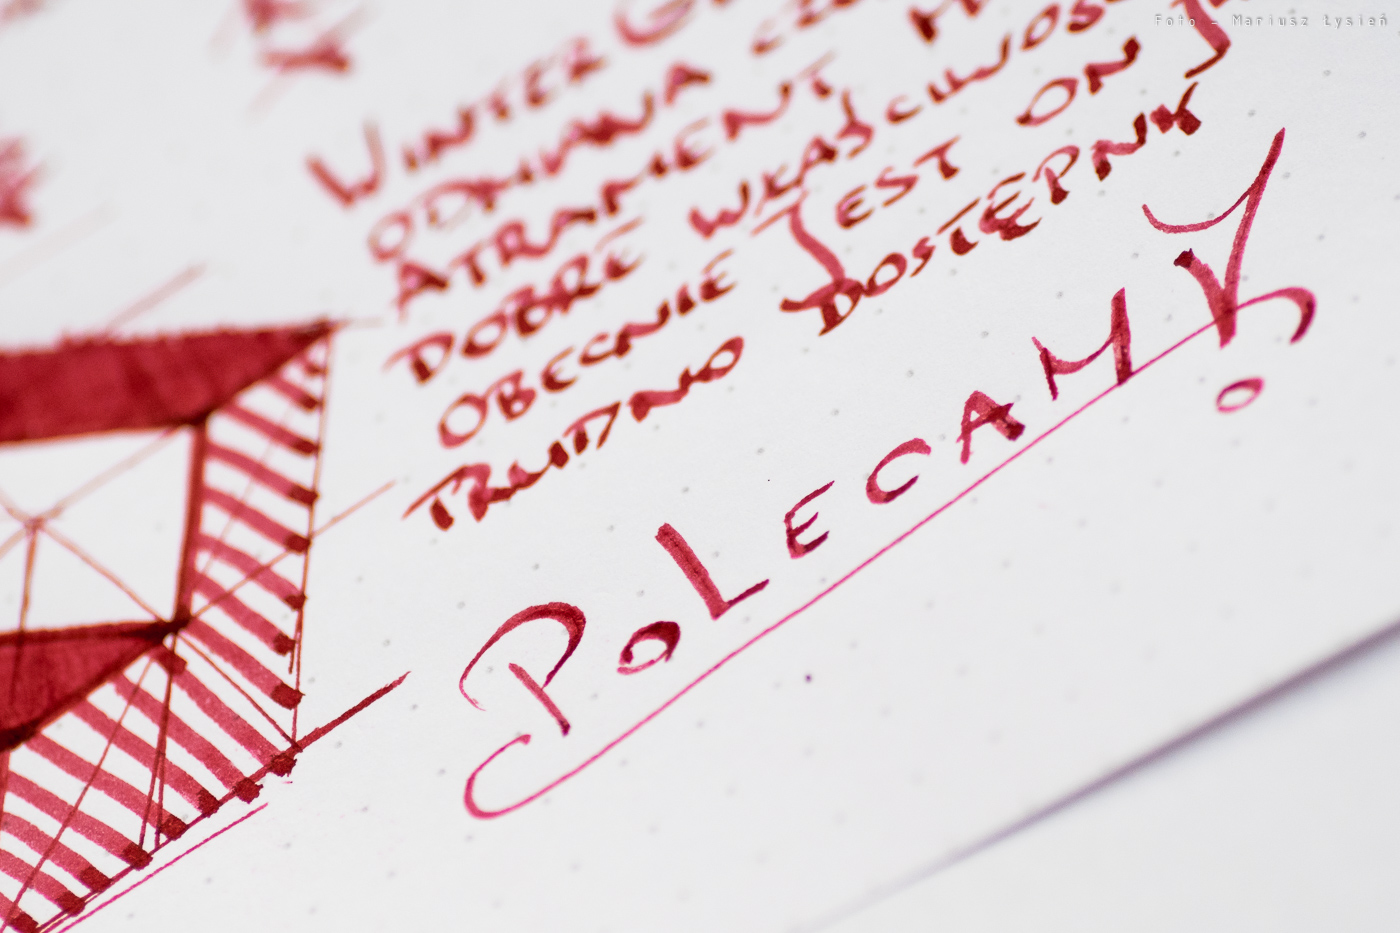 Foto - Mariusz Łysień
WINTER
ODMIANA
ATRAMENT
DOBRE WŁAŚCIWOŚ
OBECNIE JEST ON
TRUDNO DOSTĘPNY
POLECAMY